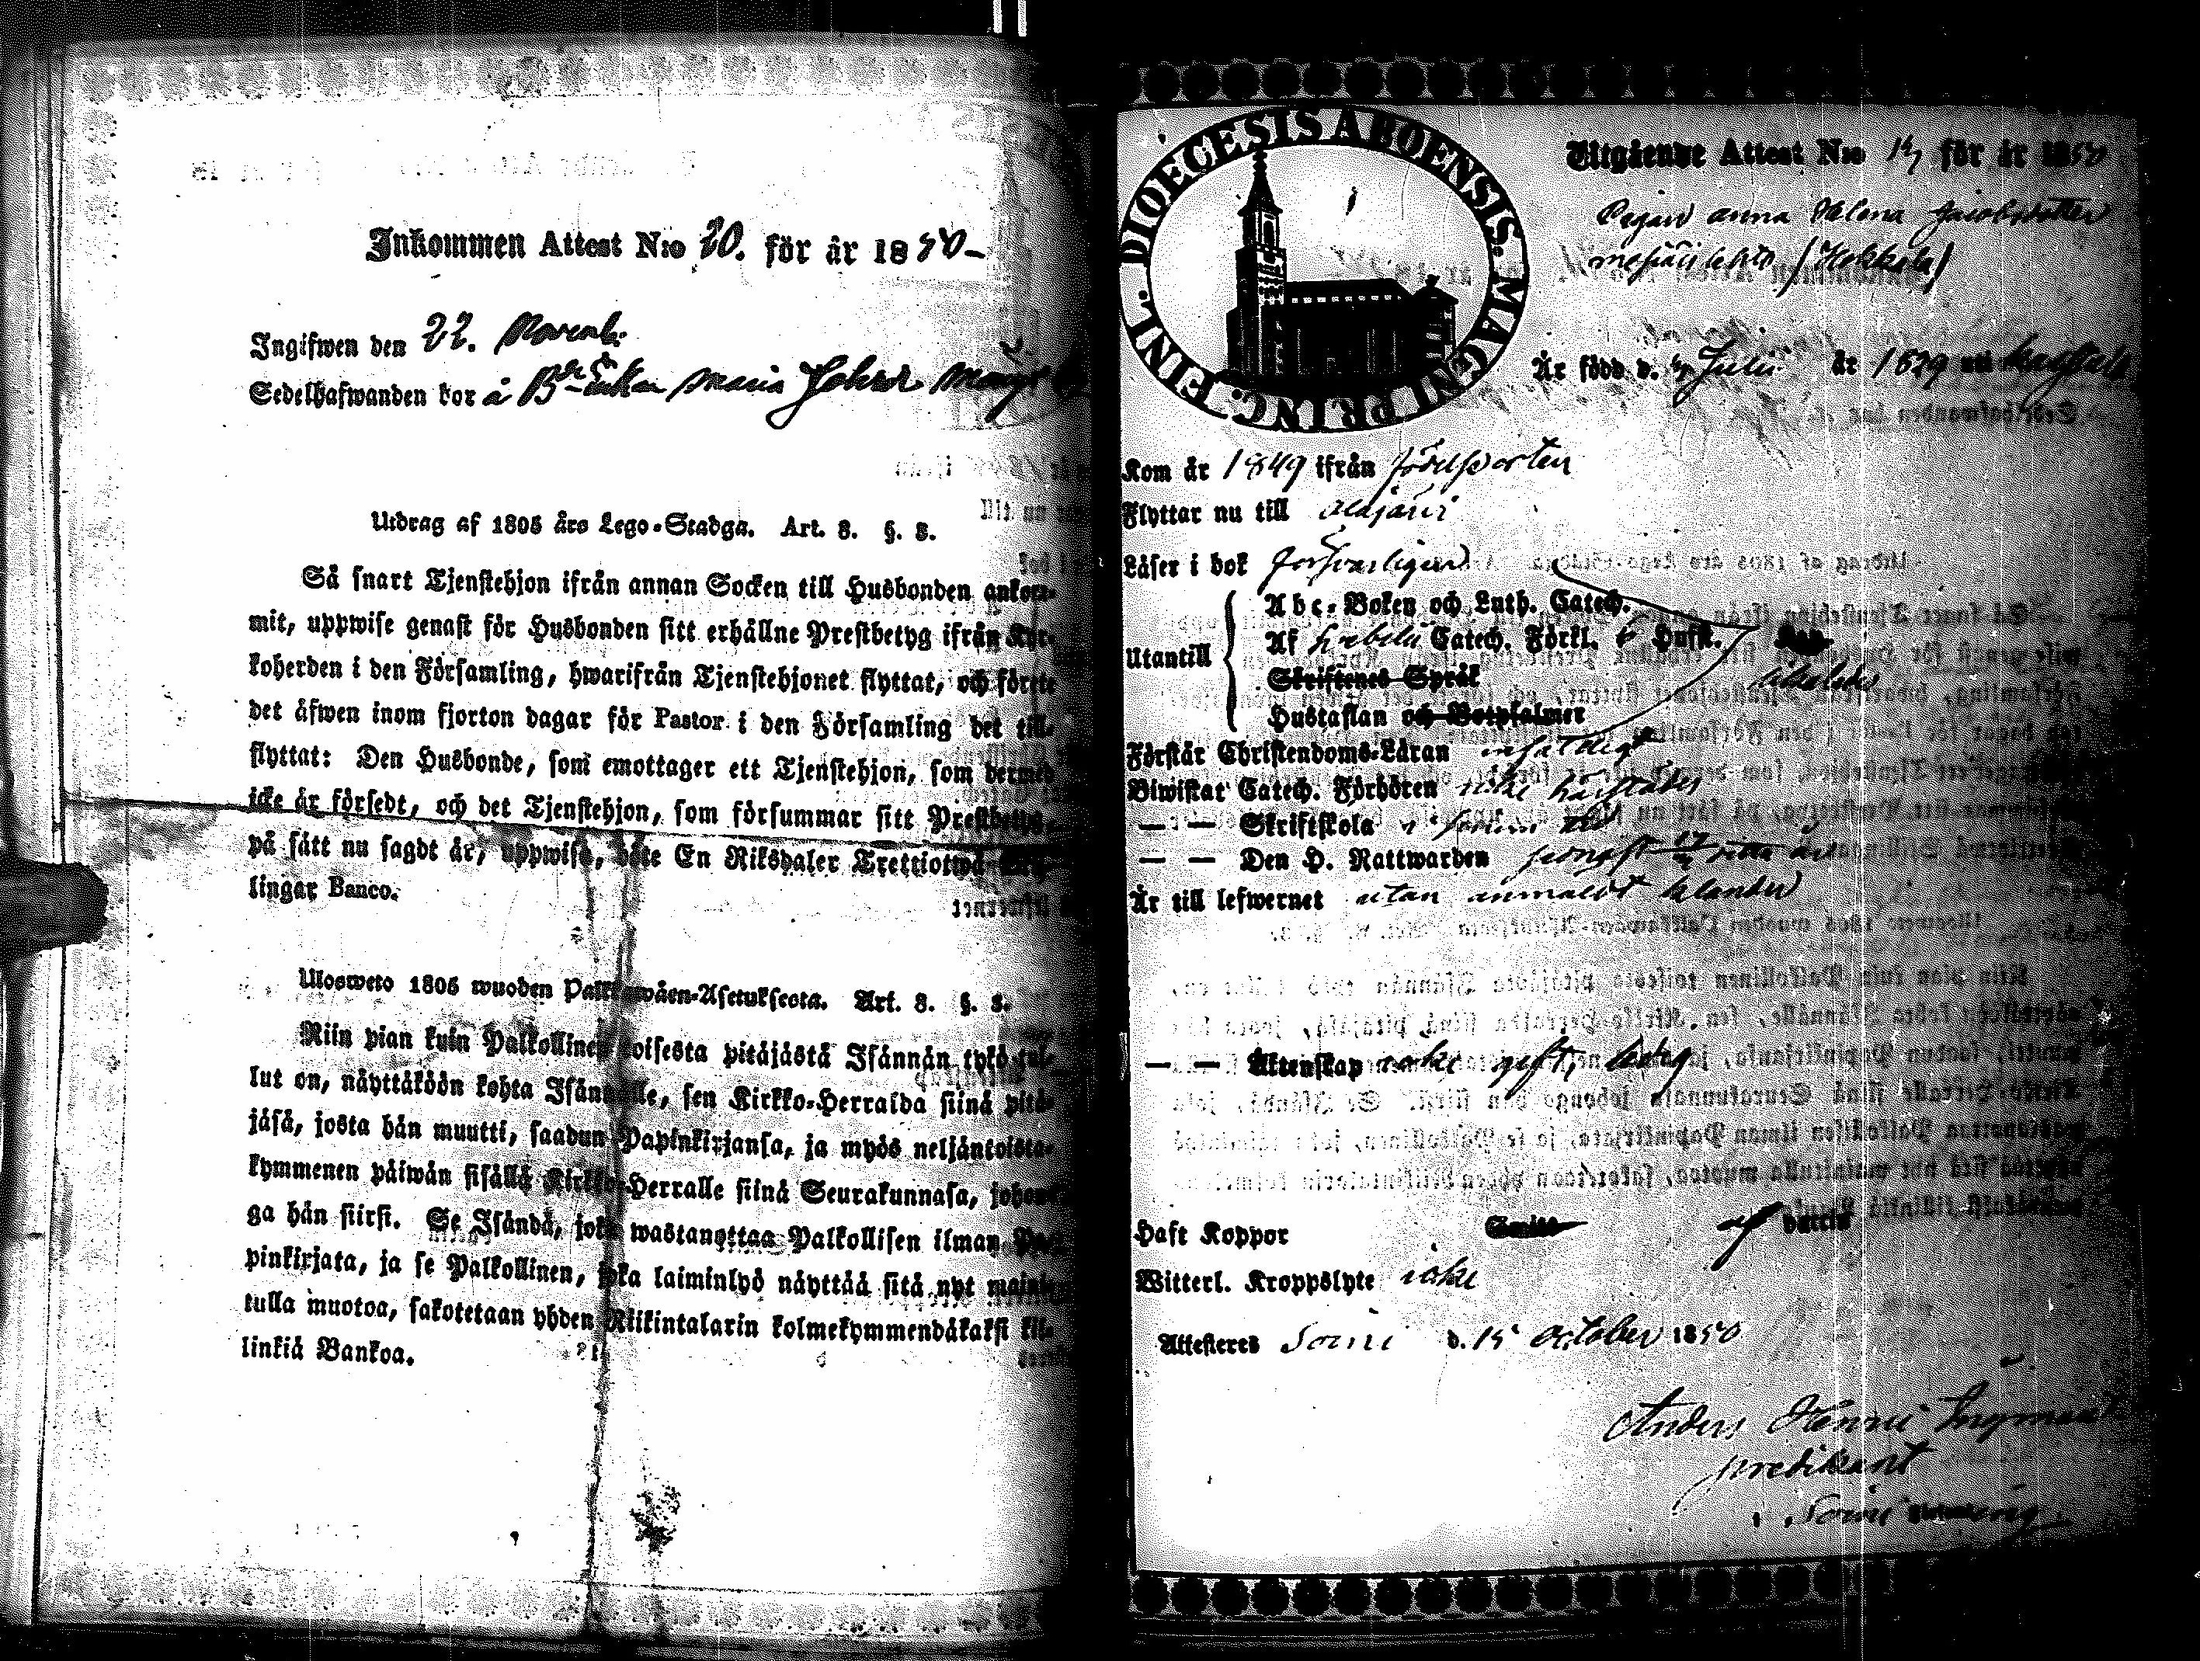 Inkommen Attest N:o 20. för år 1850
Ingifwen den 22. Novemb.
Sedelhafwanden bor å Maria
Utdrag af 1805 års Lego-Stadga. Art. 8. §. 3.
Så snart Tjenstehjon ifrån annan Socken till Husbonden ankom-
mit, uppwise genast för Husbonden sitt erhållne Prestbetyg ifrån Kyr-
koherden i den Församling, hwarifrån Tjenstehjonet flyttat, och förete
det äfwen inom fjorton dagar för Pastor i den Församling det till-
flyttat: Den Husbonde, som emottager ett Tjenstehjon, som dermed
icke är försedt, och det Tjenstehjon, som försummar sitt Prestbetyg,
på sätt nu sagdt är, uppwisa, böte En Riksdaler Trettiotwå
lingar Banco.
Ulosweto 1805 wuoden Palkkawäen-Asetuksesta. Art. 8. §. 3.
Niin pian kuin Palkollinen toisesta pitäjästä Isännän tykö tul-
lut on, näyttäköön kohta Isännälle, sen Kirkko-Herralda siinä pitä-
jäsä, josta hän muutti, saadun Papinkirjansa, ja myös neljäntoista-
kymmenen päiwän sisällä Kirkko-Herralle siinä Seurakunnasa, johon-
ga hän siirsi. Se Isändä, joka wastanottaa Palkollisen ilman Pa-
pinkirjata, ja se Palkollinen, joka laiminlyö näyttää sitä nyt maini-
tulla muotoa, sakotetaan yhden Riikintalarin kolmekymmendäkaksi kil-
linkiä Bankoa.
DIOECESIS ABOENSIS. MAGNI PRINC. FINL.
Utgående Attest N:o för år 1850
Pigan Anna Helena Jacobsdotter
(Hokkala)
Är född d. Julii år 1829
Kom år 1849 ifrån födelseorten
Flyttar nu till Alajärvi
Läser i bok försvarligen
Utantill
Abc-Boken och Luth. Catech.
Af Catech. Förkl. Hufst.
Skriftenes Språk
Hustaflan och Botpsalmer
likaledes
Förstår Christendoms-Läran enfaldigt
Biwistat Catech. Förhören icke härstädes
— — Skriftskola
— — Den H. Nattwarden
Är till lefwernet utan anmäldt klander
— — Äktenskap icke gift, ledig
Haft Koppor
Witterl. Kroppslyte icke
Attesteras Soini d. 15 October 1850
Anders Henric Ingman
predikant
i Soini